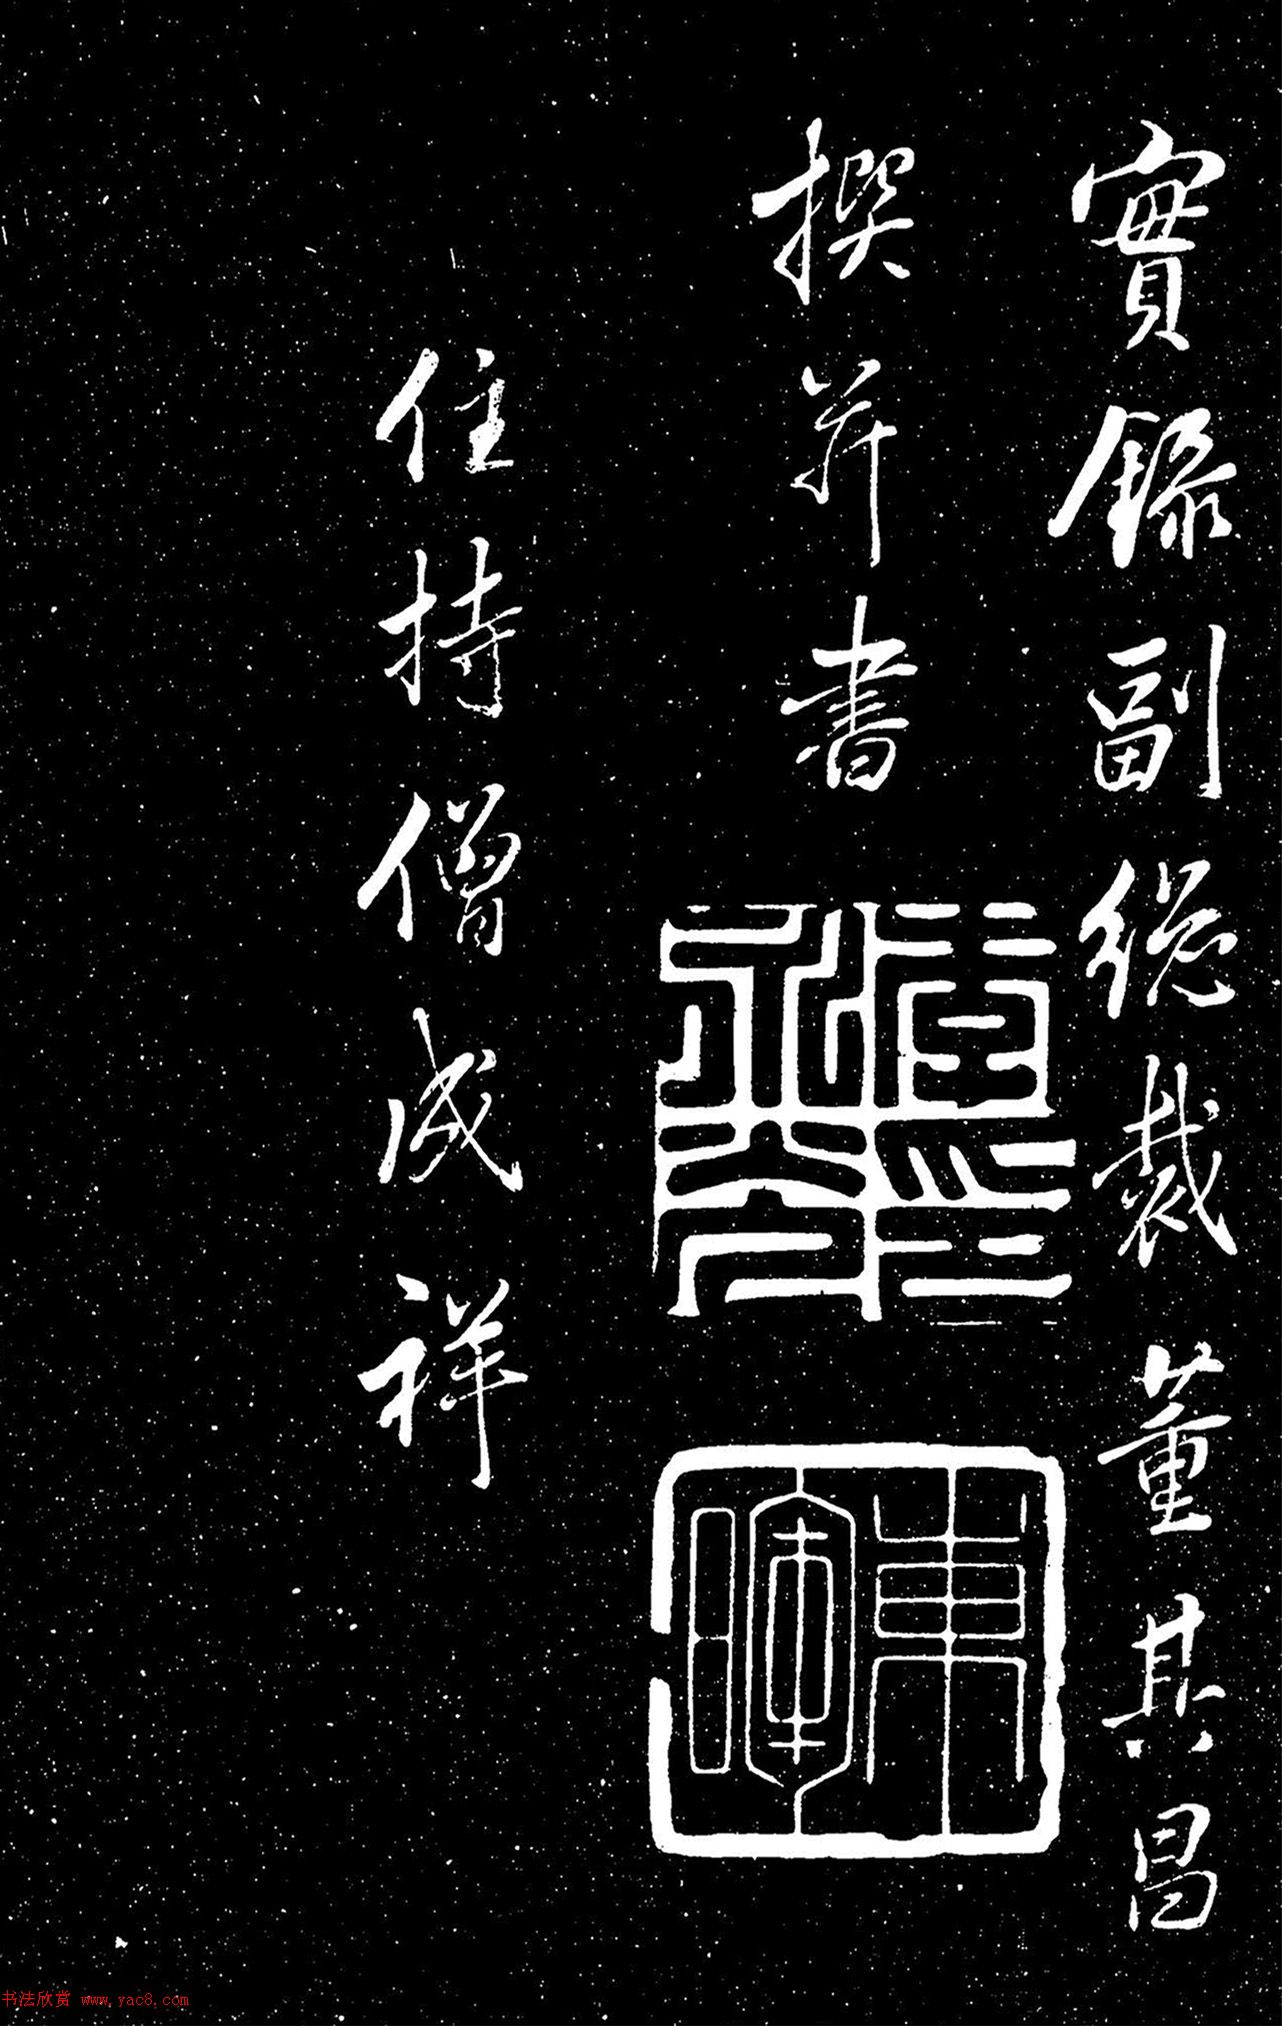 實錄副總裁董其昌
撰并書
住持僧成祥
书法欣赏 www.yac8.com